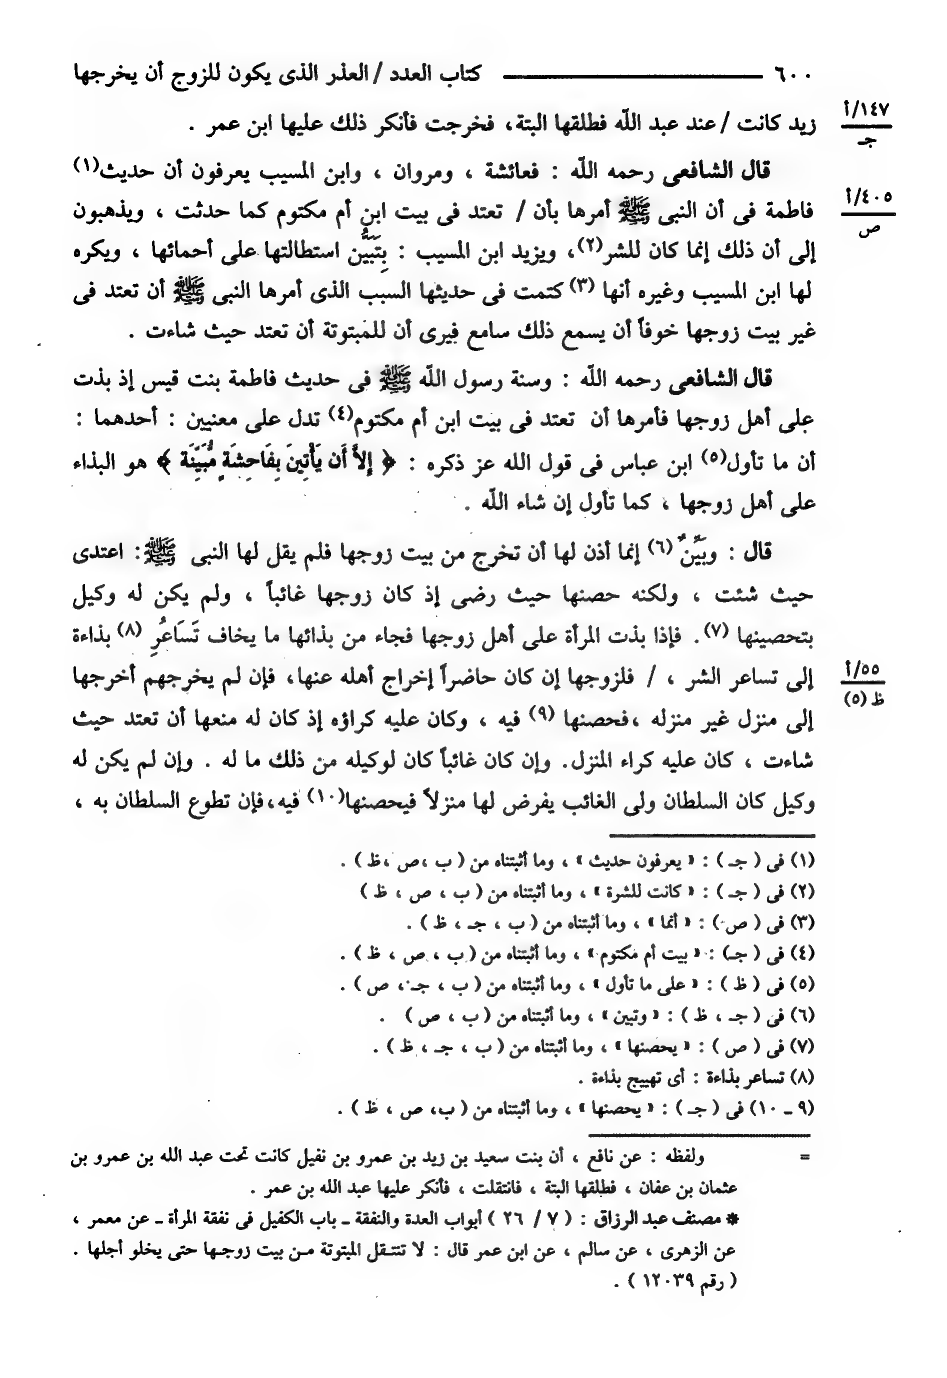 ٦٠٠ ـــــــــــــ كتاب العدد / العذر الذى يكون للزوج أن يخرجها
١٤٧/أ
جـ
زيد كانت / عند عبد اللّه فطلقها البتة، فخرجت فأنكر ذلك عليها ابن عمر .
قال الشافعى رحمه اللّه : فعائشة ، ومروان ، وابن المسيب يعرفون أن حديث(١)
٤٠٥/أ
ص
فاطمة فى أن النبى ﷺ أمرها بأن / تعتد فى بيت ابن أم مكتوم كما حدثت ، ويذهبون
إلى أن ذلك إنما كان للشر(٢)، ويزيد ابن المسيب : بِتَبَيُّنِ استطالتها على أحمائها ، ويكره
لها ابن المسيب وغيره أنها (٣) كتمت فى حديثها السبب الذى أمرها النبى ﷺ أن تعتد فى
غير بيت زوجها خوفاً أن يسمع ذلك سامع فيرى أن للمبتوتة أن تعتد حيث شاءت .
قال الشافعى رحمه اللّه : وسنة رسول اللّه ﷺ فى حديث فاطمة بنت قيس إذ بذت
على أهل زوجها فأمرها أن تعتد فى بيت ابن أم مكتوم(٤) تدل على معنيين : أحدهما :
أن ما تأول(٥) ابن عباس فى قول الله عز ذكره : ﴿ إِلاَّ أَن يَأْتِينَ بِفَاحِشَةٍ مُّبَيِّنَة ﴾ هو البذاء
على أهل زوجها ، كما تأول إن شاء اللّه .
قال : وبَيِّنٌ (٦) إنما أذن لها أن تخرج من بيت زوجها فلم يقل لها النبى ﷺ : اعتدى
حيث شئت ، ولكنه حصنها حيث رضى إذ كان زوجها غائباً ، ولم يكن له وكيل
بتحصينها (٧). فإذا بذت المرأة على أهل زوجها فجاء من بذائها ما يخاف تَسَاعُرِ (٨) بذاءة
٥٥/أ
ظ (٥)
إلى تساعر الشر ، / فلزوجها إن كان حاضراً إخراج أهله عنها، فإن لم يخرجهم أخرجها
إلى منزل غير منزله ،فحصنها (٩) فيه ، وكان عليه كراؤه إذ كان له منعها أن تعتد حيث
شاءت ، كان عليه كراء المنزل. وإن كان غائباً كان لوكيله من ذلك ما له . وإن لم يكن له
وكيل كان السلطان ولى الغائب يفرض لها منزلاً فيحصنها(١٠) فيه،فإن تطوع السلطان به ،
(١) فى ( جـ ) : « يعرفون حديث » ، وما أثبتناه من ( ب ،ص ،ظ ) .
(٢) فى ( جـ ) : « كانت للشرة » ، وما أثبتناه من ( ب ، ص ، ظ )
(٣) فى ( ص ) : « أنما » ، وما أثبتناه من ( ب ، جـ ، ظ ) .
(٤) فى ( جـ) : « بيت أم مكتوم » ، وما أثبتناه من ( ب ، ص ، ظ ) .
(٥) فى ( ظ ) : « على ما تأول » ، وما أثبتناه من ( ب ، جـ ، ص ) .
(٦) فى ( جـ ، ظ ) : « وتبين » ، وما أثبتناه من ( ب ، ص ) .
(٧) فى ( ص ) : « يحصنها » ، وما أثبتناه من ( ب ، جـ ، ظ ) .
(٨) تساعر بذاءة : أى تهييج بذاءة .
(٩ ـ ١٠) فى ( جـ ) : « يحصنها » ، وما أثبتناه من ( ب، ص ، ظ ) .
= ولفظه : عن نافع ، أن بنت سعيد بن زيد بن عمرو بن نفيل كانت تحت عبد الله بن عمرو بن
عثمان بن عفان ، فطلقها البتة ، فانتقلت ، فأنكر عليها عبد الله بن عمر .
* مصنف عبد الرزاق : ( ٧ / ٢٦ ) أبواب العدة والنفقة ـ باب الكفيل فى نفقة المرأة ـ عن معمر ،
عن الزهرى ، عن سالم ، عن ابن عمر قال : لا تنتقل المبتوتة من بيت زوجها حتى يخلو أجلها .
( رقم ١٢٠٣٩ ) .